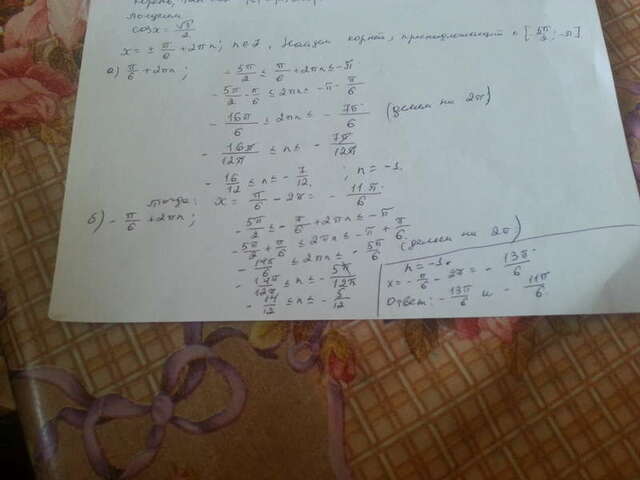 получим
cosx = √3/2
x = ± π/6 + 2πn; n∈Z, Найдем корней, принадлежащих [-5π/2; -π]
а) π/6 + 2πn; -5π/2 ≤ π/6 + 2πn ≤ -π
-5π/2 - π/6 ≤ 2πn ≤ -π - π/6
-16π/6 ≤ 2πn ≤ -7π/6 (делим на 2π)
-16π/12π ≤ n ≤ -7π/12π
-16/12 ≤ n ≤ -7/12; n = -1.
тогда: x = π/6 - 2π = -11π/6
б) -π/6 + 2πn; -5π/2 ≤ -π/6 + 2πn ≤ -π
-5π/2 + π/6 ≤ 2πn ≤ -π + π/6
-14π/6 ≤ 2πn ≤ -5π/6 (делим на 2π)
-14π/12π ≤ n ≤ -5π/12π
-14/12 ≤ n ≤ -5/12
n = -1.
x = -π/6 - 2π = -13π/6
Ответ: -13π/6 и -11π/6.